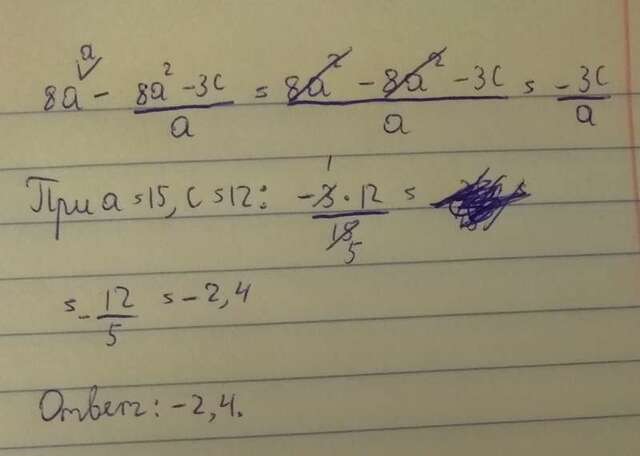 8a^a - (8a² - 3c)/a = (8a² - 8a² - 3c)/a = -3c/a
При a = 15, c = 12: (-3 · 12)/15 =
= -12/5 = -2,4
Ответ: -2,4.